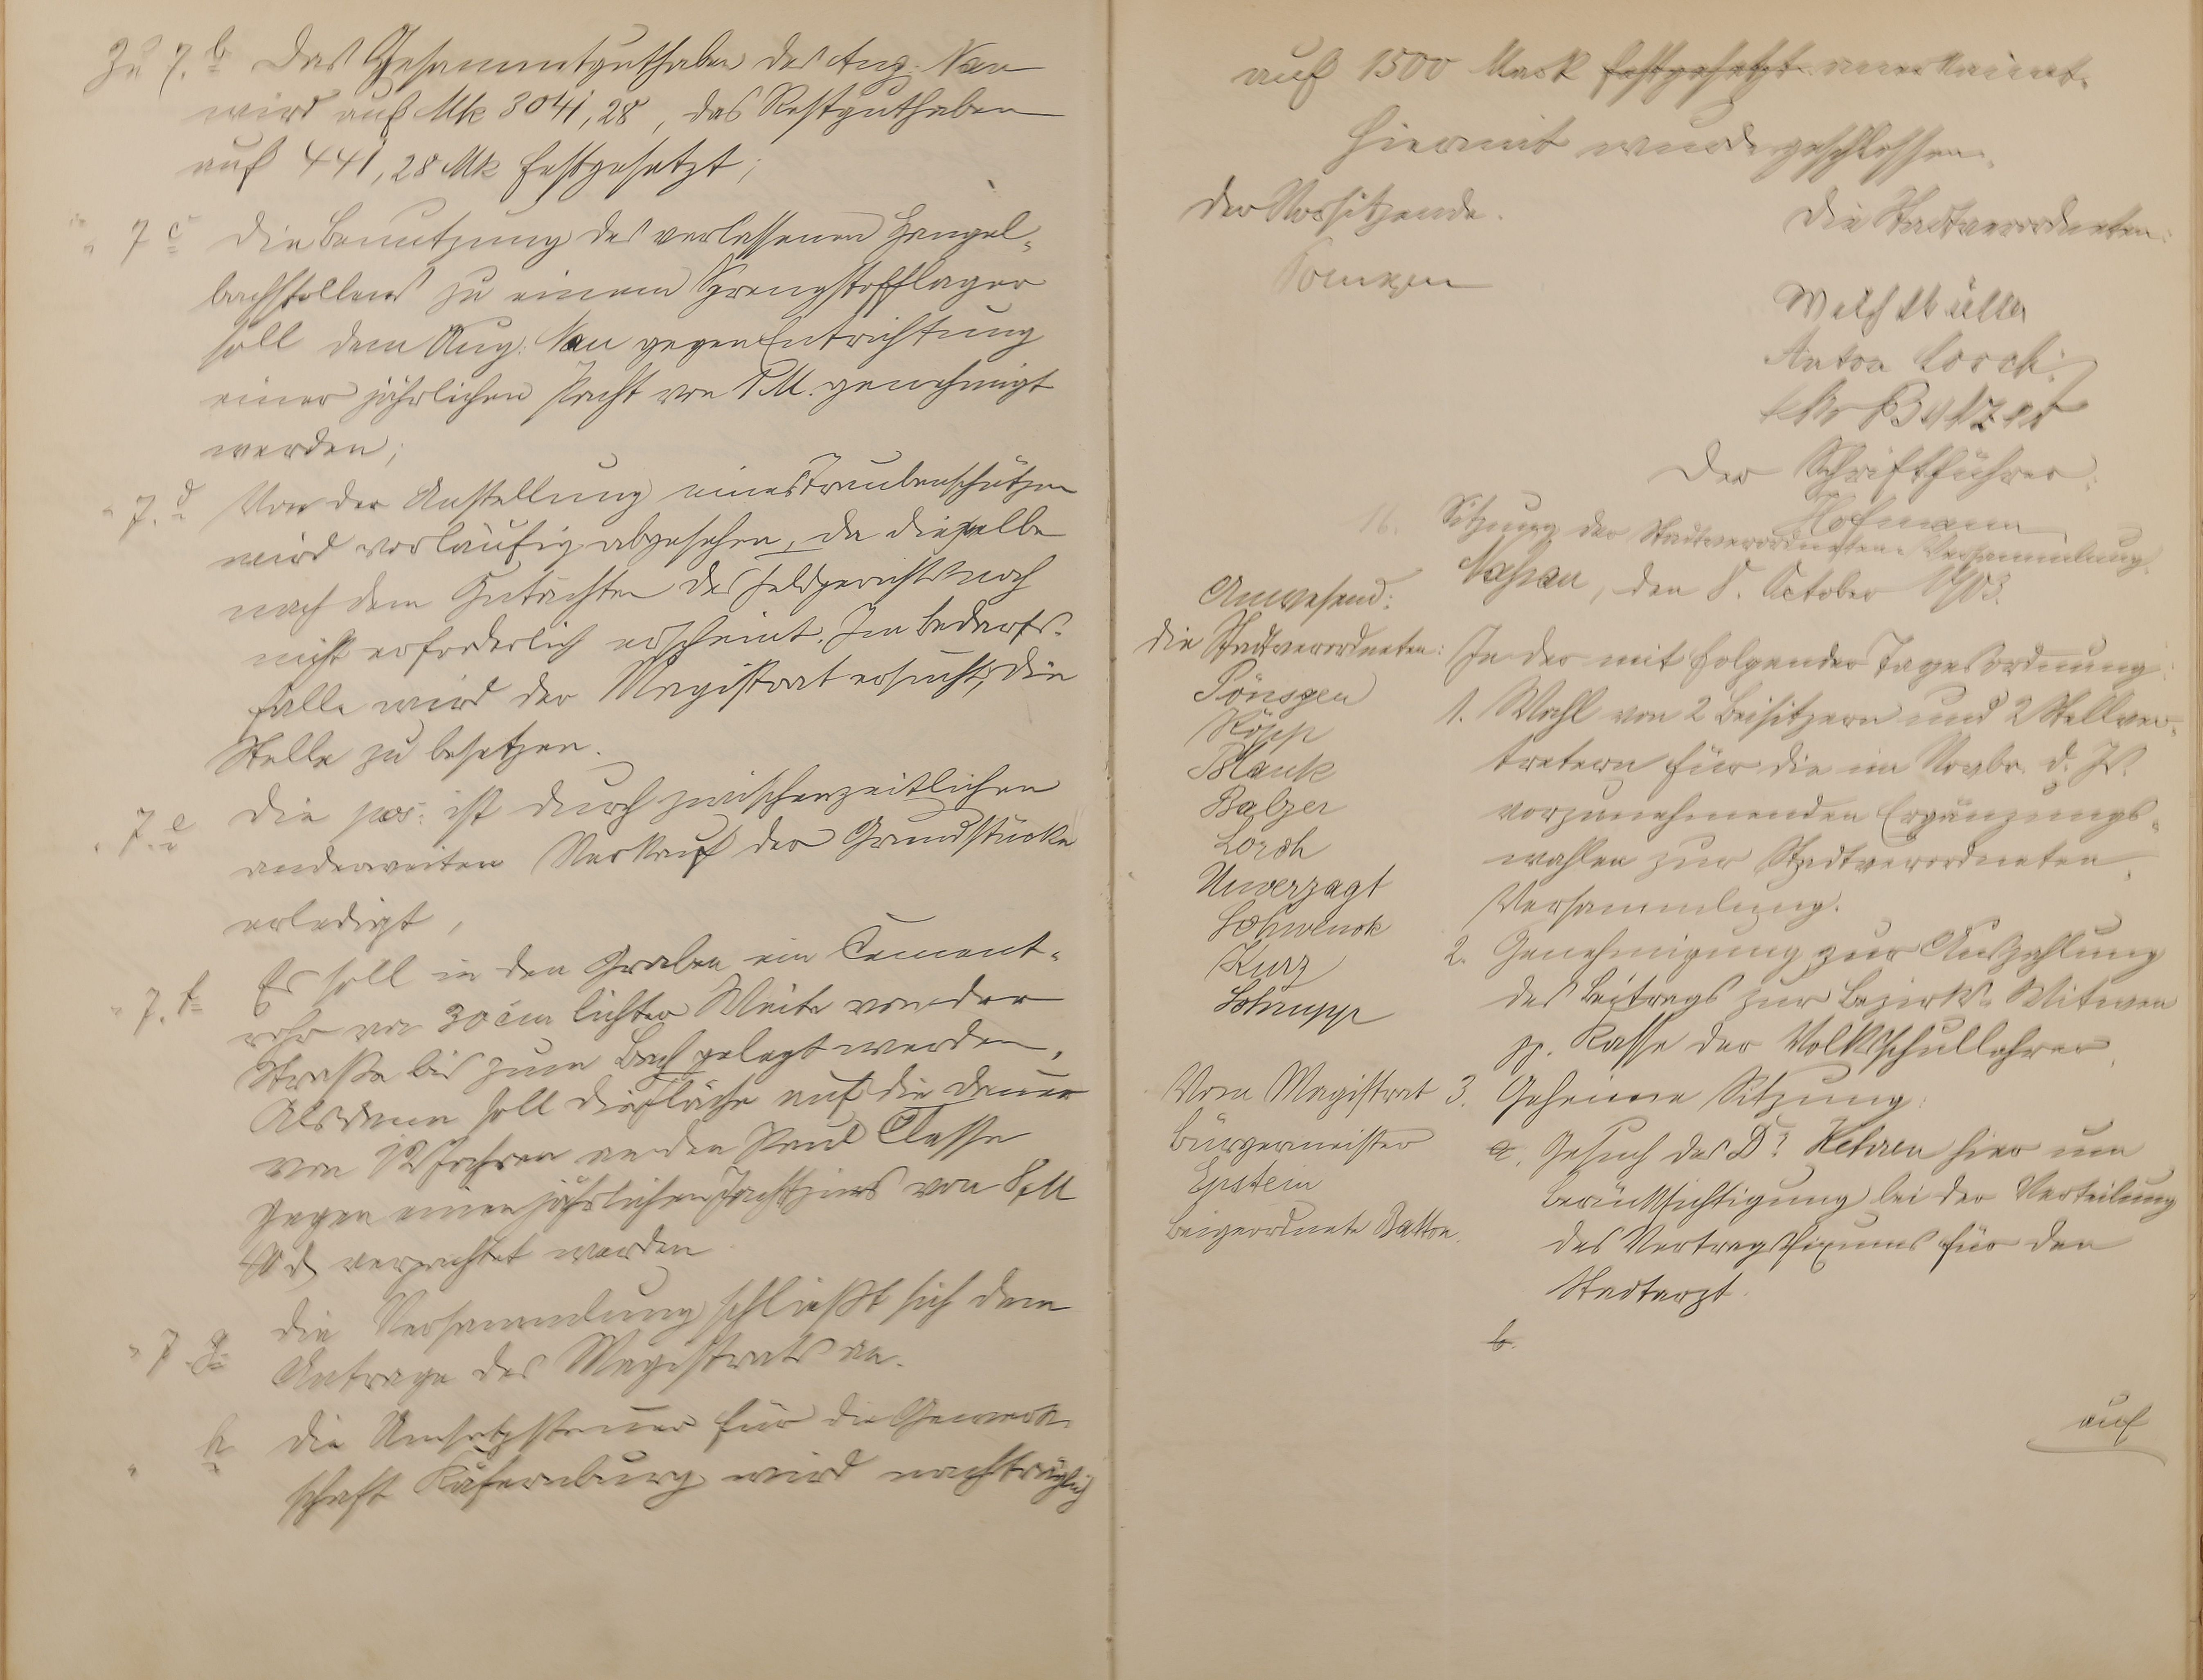 Zu 7. b Das Gesammtguthaben des Aug. Nau
wird auf Mk 3041,28, das Restguthaben
auf 441,28 Mk festgesetzt;
" 7 c Die Benutzung des verlassenen Hengel-
bachstollens zu einem Sprengstofflager
soll dem Aug. Nau gegen Entrichtung
einer jährlichen Pacht von M. genehmigt
werden;
" 7. d Von der Anstellung eines Traubenschützen
wird vorläufig abgesehen, da dieselbe
nach dem Gutachten des Feldgerichts noch
nicht erforderlich erscheint. Im Bedarfs-
falle wird der Magistrat ersucht, die
Stelle zu besetzen.
" 7. e Die pos. ist durch zwischenzeitlichen
anderweiten Verkauf der Grundstücke
erledigt,
" 7. f Es soll in den Graben ein Cement-
rohr von 30 cm lichter Weite von der
Straße bis zum Bach gelegt werden,
Alsdann soll die Fläche auf die Dauer
von 12 Jahren an den Paul Classe
gegen einen jährlichen Pachtzins von M
verpachtet werden.
" 7. g Die Versammlung schließt sich dem
Antrage des Magistrats an.
" h Die Umsatzsteuer für die Gewerk-
schaft Käfernburg wird nachträglich
auf 1500 Mark festgesetzt anerkannt.
Hiermit wurde geschlossen.
Der Vorsitzende. Die Stadtverordneten:
Anton Lorch
Balzer
Der Schriftführer:
Hofmann
16. Sitzung der Stadtverordneten-Versammlung.
Nassau, den 8. October 1903.
Anwesend:
die Stadtverordneten:
Pönsgen
Köpp
Blank
Balzer
Lorch
Unverzagt
Schwenk
Kurz
Schrupp
Vom Magistrat
Bürgermeister
Epstein
Beigeordnete Balzer.
In der mit folgender Tagesordnung:
1. Wahl von 2 Beisitzern und 2 Stellver-
tretern für die im Novbr. d. Js.
vorzunehmenden Ergänzungs-
wahlen zur Stadtverordneten-
Versammlung.
2. Genehmigung zur Auszahlung
des Beitrags zur Bezirks-Witwen
pp. Kasse der Volksschullehrer.
3. Geheime Sitzung:
a. Gesuch des Dr. hier um
Berücksichtigung bei der Verteilung
des Vertragsfixums für den
Stadtarzt.
b.
auf